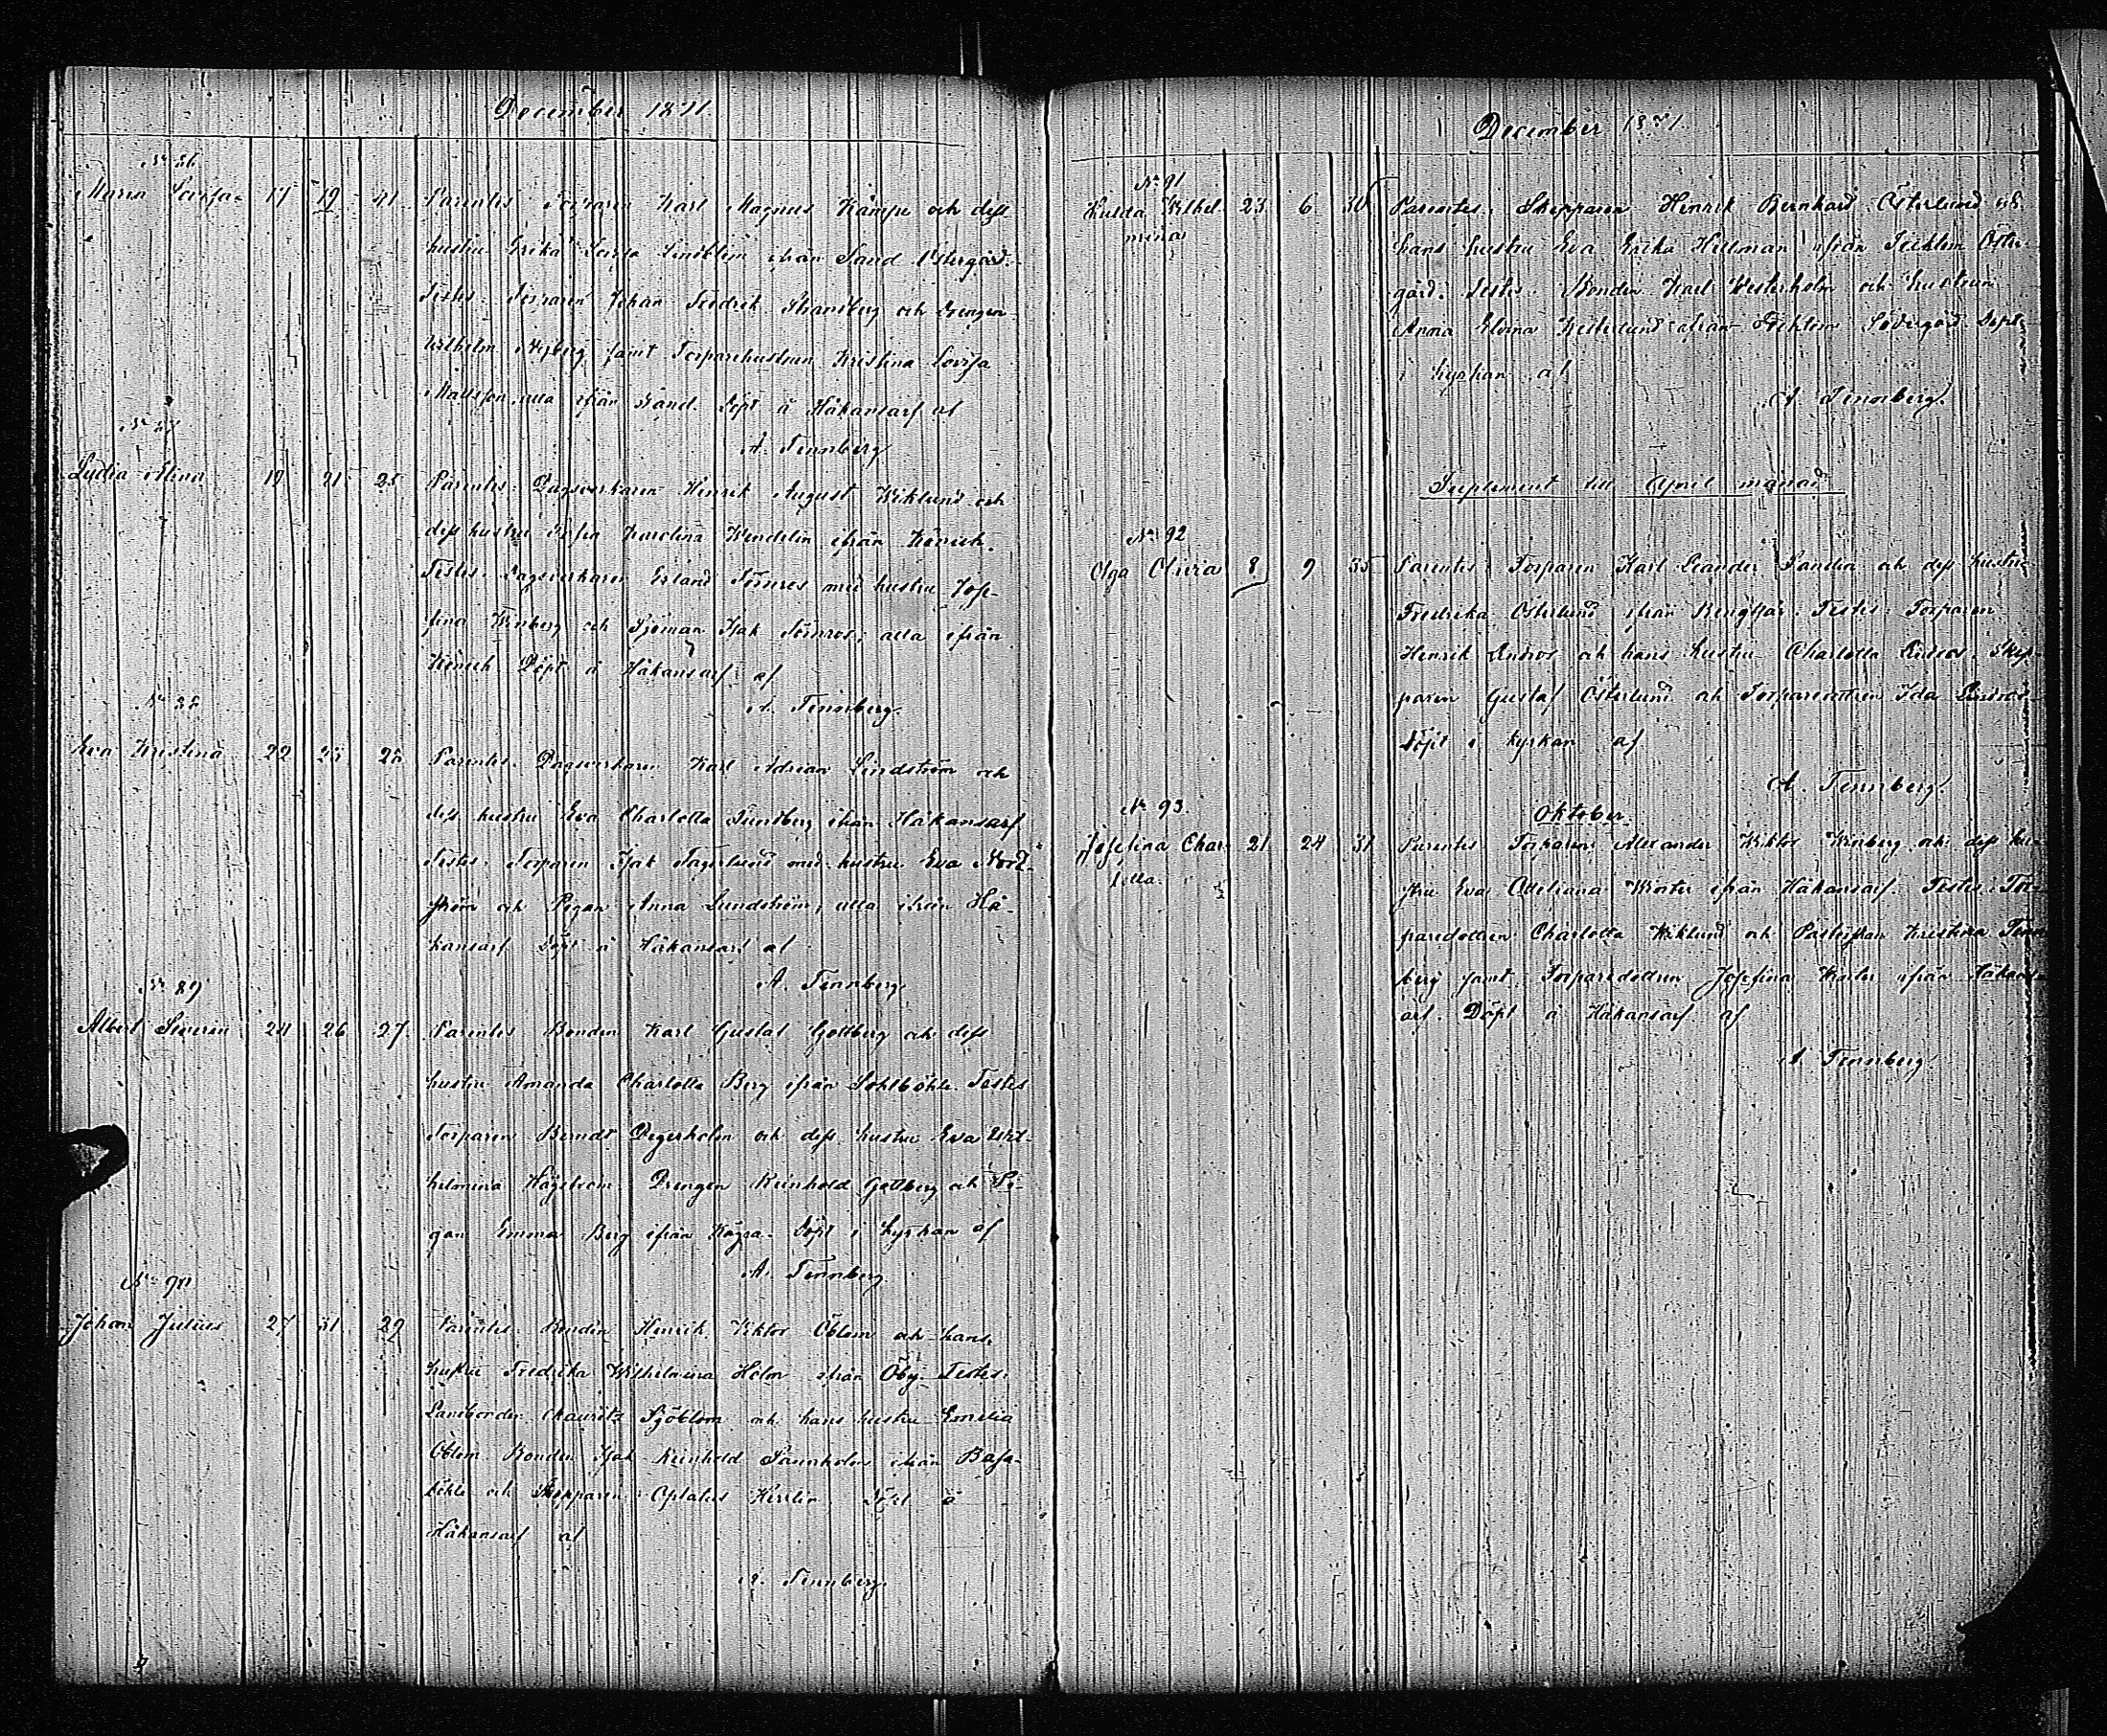 December 1871.
No 86
Maria Lovisa 17 19 41 Parentes Torparen Karl Magnus Kämpe och dess
hustru Erika Lovisa Lindblom ifrån Sand Östergård.
Testes: Torparen Johan Fredrik Strandberg och Drengen
Wilhelm Nyberg samt Torparehustrun Kristina Lovisa
Mattsson, alla ifrån Sand. Döpt å Håkansarf af
A. Tennberg
No 87
Lydia Alina 19 21 25 Parentes: Dagsverkaren Henrik August Wiklund och
dess hustru Sofia Karolina Wendelin ifrån
Testes: Dagsverkaren Erland Törnros med hustru Jose-
fina Winberg och Sjöman Isak Törnros; alla ifrån
Döpt å Håkansarf af
A. Tennberg.
No 88
Eva Kristina 22 25 28 Parentes Dagsverkaren Karl Adrian Lindström och
dess hustru Eva Charlotta Sundberg ifrån Håkansarf
Testes: Torparen Isak Fagerlund med hustru Eva Nord-
ström och Pigan Anna Lundström, alla ifrån Hå-
kansarf Döpt å Håkansarf af
A. Tennberg
No 89
Albert Severin 24 26 27. Parentes Bonden Karl Gustaf Gottberg och dess
hustru Amanda Charlotta Berg ifrån Sohlböhle Testes
Torparen Berndt Degerholm och dess hustru Eva Wil-
helmina Högström. Drengen Reinhold Gottberg och Pi-
gan Emma Berg ifrån Döpt i kyrkan af
A. Tennberg
No 90
Johan Julius 27 31 29 Parentes Bonden Henrik Viktor Öblom och hans
hustru Fredrika Wilhelmina Holm ifrån Öby. Testes:
Landbonden Mauritz Sjöblom och hans hustru Emelia
Öblom Bonden Isak Reinhold ifrån Basa-
böhle och Skepparen Optatus Döpt å
Håkansarf af
A. Tennberg.
December 1871.
No 91
Hulda Wilhel- 23 6 30 Parentes: Skepparen Henrik Bernhard Österlund och
mina
hans hustru Eva Erika Hellman ifrån Öster-
gård. Testes: Bonden Karl Westerholm och hustrun
Anna Elvina ifrån Södergård. Döpt
i kyrkan af
A. Tennberg.
Suplement till April månad
No 92
Olga Olivia 8 9 35 Parentes: Torparen Karl Leander Sandin och dess hustru
Fredrika Österlund ifrån Bengtsår. Testes: Torparen
Henrik Lindros och hans hustru Charlotta Lindros. Skep-
paren Gustaf Österlund och Torparedottren Ida Lindros
Döpt i kyrkan af
A. Tennberg.
No 93.
Oktober
Josefina Char- 21 24 31 Parentes Torparen Alexander Viktor Winberg och dess hu-
lotta.
stru Eva Ottiliana Winter ifrån Håkansarf. Testes: Tor-
paredottren Charlotta Wiklund och Pastorskan Kristina Tenn-
berg samt Torparedottren Josefina ifrån Håkans-
arf. Döpt å Håkansarf af
A Tennberg.